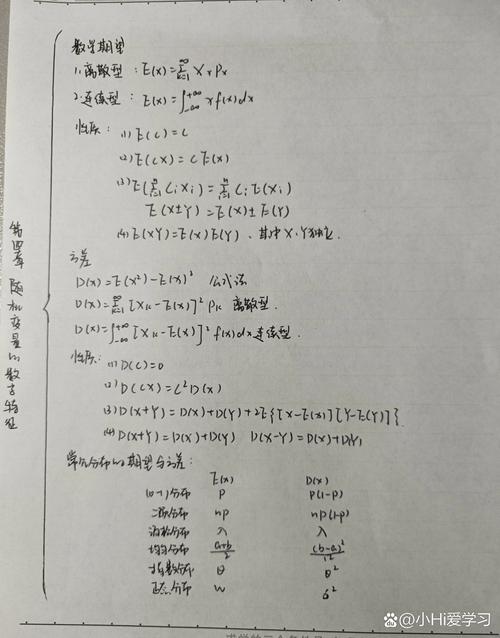 第四章 随机变量的数字特征
数学期望
1.离散型：E(x)=∑_{k=1}^{∞} X_k P_k
2.连续型：E(x)=∫_{-∞}^{+∞} x f(x)dx
性质：(1) E(C)=C
(2) E(CX)=CE(X)
(3) E(∑_{i=1}^{n} C_i X_i)=∑_{i=1}^{n} C_i E(X_i)
E(X±Y)=E(X)±E(Y)
(4) E(XY)=E(X)E(Y)、其中X、Y独立.
方差
D(x)=E(x²)-E(x)² 公式法
D(x)=∑_{k=1}^{∞}[X_k-E(x)]² P_k 离散型.
D(x)=∫_{-∞}^{+∞}[X_k-E(x)]² f(x)dx 连续型.
性质：(1) D(C)=0
(2) D(CX)=C²D(x)
(3) D(X+Y)=D(x)+D(Y)+2E{[X-E(x)][Y-E(Y)]}
(4) D(X+Y)=D(x)+D(Y) D(X-Y)=D(X)+D(Y)
常见分布的期望与方差：
E(x) D(x)
(0-1)分布 P P(1-P)
二项分布 np np(1-p)
泊松分布 λ λ
均匀分布 (a+b)/2 (b-a)²/12
指数分布 θ θ²
正态分布 u δ²
@小Hi爱学习